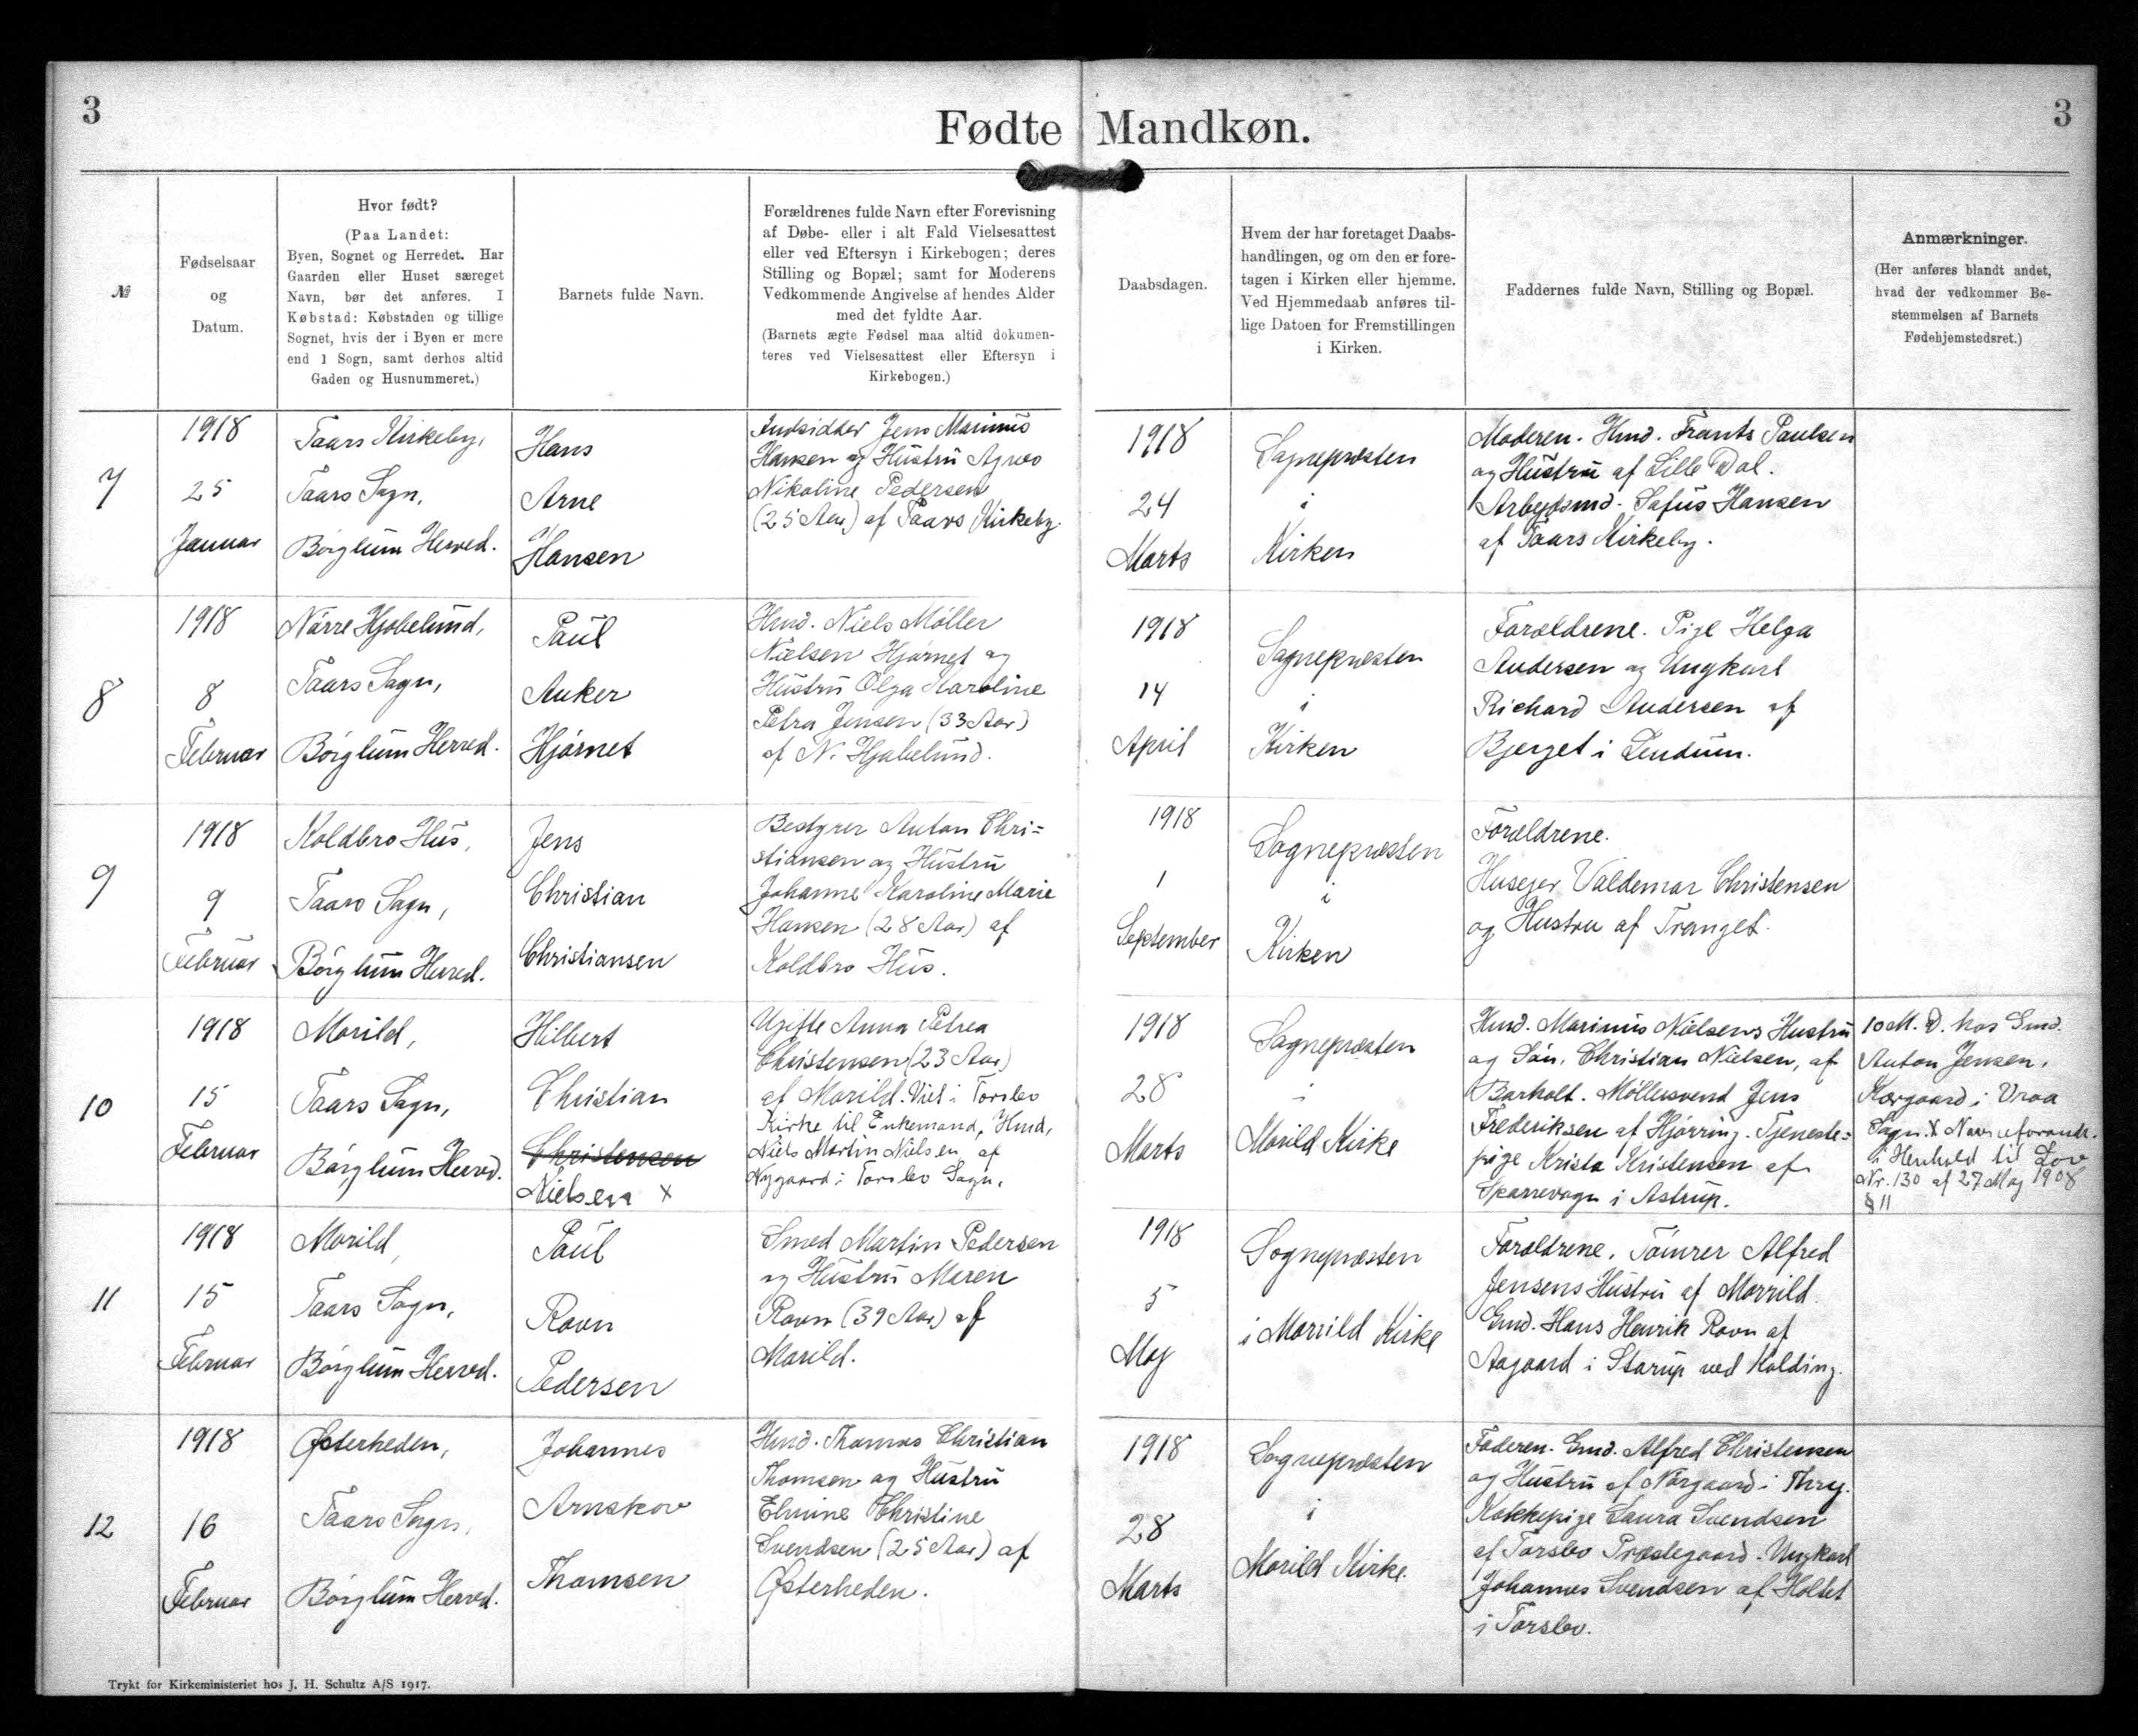 3
Fødte Mandkøn.
3
№
Fødselsaar
og
Datum.
Hvor født?
(Paa Landet:
Byen, Sognet og Herredet. Har
Gaarden eller Huset særeget
Navn, bør det anføres. I
Købstad: Købstaden og tillige
Sognet, hvis der i Byen er mere
end 1 Sogn, samt derhos altid
Gaden og Husnummeret.)
Barnets fulde Navn.
Forældrenes fulde Navn efter Forevisning
af Døbe- eller i alt Fald Vielsesattest
eller ved Eftersyn i Kirkebogen; deres
Stilling og Bopæl; samt for Moderens
Vedkommende Angivelse af hendes Alder
med det fyldte Aar.
(Barnets ægte Fødsel maa altid dokumen-
teres ved Vielsesattest eller Eftersyn i
Kirkebogen.)
Daabsdagen.
Hvem der har foretaget Daabs-
handlingen, og om den er fore-
tagen i Kirken eller hjemme.
Ved Hjemmedaab anføres til-
lige Datoen for Fremstillingen
i Kirken.
Faddernes fulde Navn, Stilling og Bopæl.
Anmærkninger.
(Her anføres blandt andet,
hvad der vedkommer Be-
stemmelsen af Barnets
Fødehjemstedsret.)
7
1918
25
Januar
Taars Kirkeby,
Taars Sogn,
Børglum Herred.
Hans
Arne
Hansen
Indsidder Jens Marinus
Hansen og Hustru Agnes
Nikoline Pedersen
(25 Aar) af Taars Kirkeby.
1918
24
Marts
Sognepræsten
i
Kirken
Moderen. Hmd. Frants Paulsen
og Hustru af Lille Dal.
Arbejdsmd. Sofus Hansen
af Taars Kirkeby.
8
1918
8
Februar
Nørre Hjobelund,
Taars Sogn,
Børglum Herred.
Paul
Anker
Hjørnet
Hmd. Niels Møller
Nielsen Hjørnet og
Hustru Olga Karoline
Petra Jensen (33 Aar)
af N. Hjobelund.
1918
14
April
Sognepræsten
i
Kirken
Forældrene. Pige Helga
Andersen og Ungkarl
Richard Andersen af
Bjerget i Lendum.
9
1918
9
Februar
Koldbro Hus,
Taars Sogn,
Børglum Herred.
Jens
Christian
Christiansen
Bestyrer Anton Chri=
stiansen og Hustru
Johanne Karoline Marie
Hansen (28 Aar) af
Koldbro Hus.
1918
1
September
Sognepræsten
i
Kirken
Forældrene.
Husejer Valdemar Christensen
og Hustru af Tranget.
10
1918
15
Februar
Morild,
Taars Sogn,
Børglum Herred.
Hilbert
Christian
Christensen
Nielsen x
Ugifte Anna Petrea
Christensen (23 Aar)
af Morild. Viet i Torslev
Kirke til Enkemand, Hmd,
Niels Martin Nielsen af
Nygaard i Torslev Sogn.
1918
28
Marts
Sognepræsten
i
Morild Kirke
Hmd. Marinus Nielsens Hustru
og Søn, Christian Nielsen, af
Barholt. Møllersvend Jens
Frederiksen af Hjørring. Tjeneste=
pige Krista Kristensen af
Sparrevogn i Astrup.
10 M. D. hos Gmd.
Anton Jensen,
Kærgaard i Vraa
Sogn. X Navneforandr.
i Henhold til Lov
Nr. 130 af 27 Maj 1908
§ 11
11
1918
15
Februar
Morild,
Taars Sogn,
Børglum Herred.
Paul
Ravn
Pedersen
Smed Martin Pedersen
og Hustru Maren
Ravn (39 Aar) af
Morild.
1918
5
Maj
Sognepræsten
i Morrild Kirke
Forældrene. Tømrer Alfred
Jensens Hustru af Morrild.
Gmd. Hans Henrik Ravn af
Aagaard i Starup ved Kolding.
12
1918
16
Februar
Østerheden,
Taars Sogn,
Børglum Herred.
Johannes
Arnskov
Thomsen
Hmd. Thomas Christian
Thomsen og Hustru
Elmine Christine
Svendsen (25 Aar) af
Østerheden.
1918
28
Marts
Sognepræsten
i
Morild Kirke
Faderen. Gmd. Alfred Christensen
og Hustru af Nørgaard i Threy.
Kokkepige Laura Svendsen
af Torslev Præstegaard. Ungkarl
Johannes Svendsen af Holtet
i Torslev.
Trykt for Kirkeministeriet hos J. H. Schultz A/S 1917.